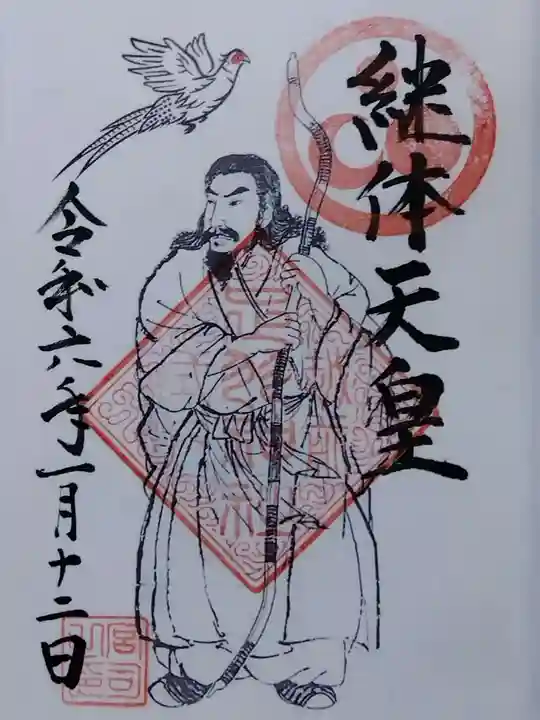 継体天皇
令和六年一月十二日